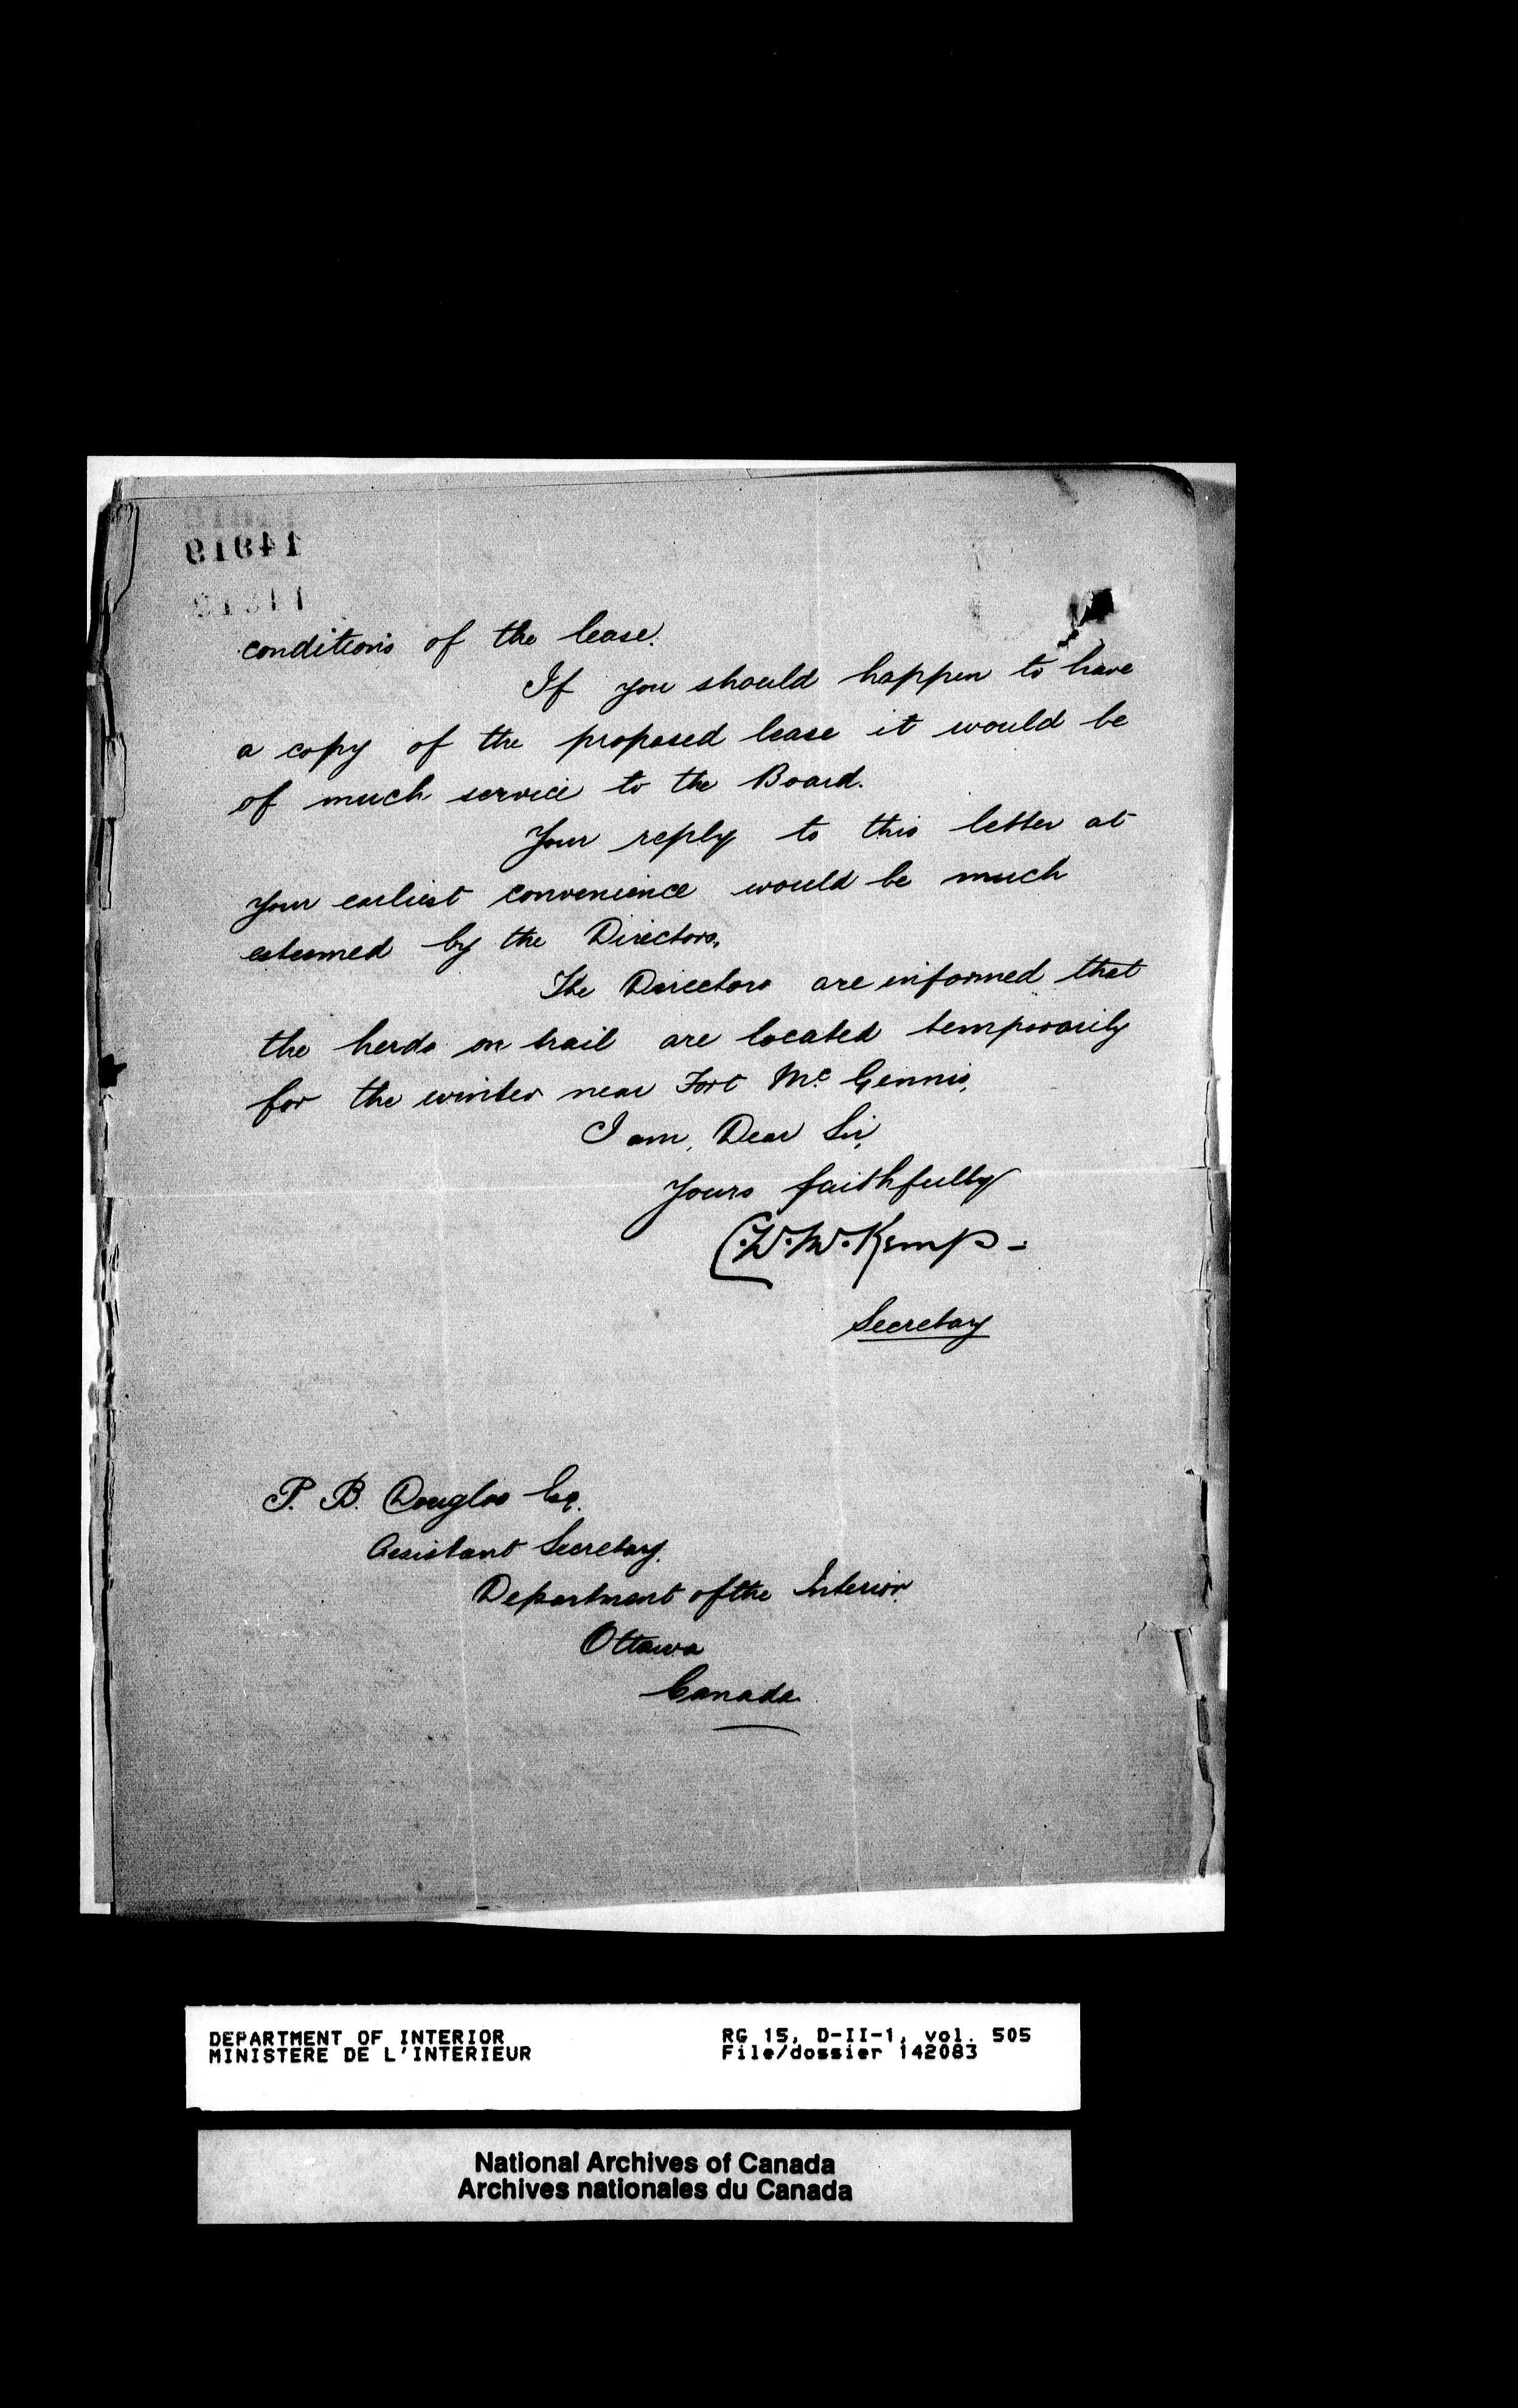 14919
conditions of the lease.
If you should happen to have
a copy of the proposed lease it would be
of much service to the Board.
Your reply to this letter at
your earliest convenience would be much
esteemed by the Directors.
The Directors are informed that
the herds on trail are located temporarily
for the winter near Fort Mc Gennis.
I am, Dear Sir,
Yours faithfully
W. Kemp -
Secretary
P. B. Douglas Esq.
Assistant Secretary.
Department of the Interior.
Ottawa
Canada.
DEPARTMENT OF INTERIOR RG 15, D-II-1, vol. 505
MINISTERE DE L'INTERIEUR File/dossier 142083
National Archives of Canada
Archives nationales du Canada